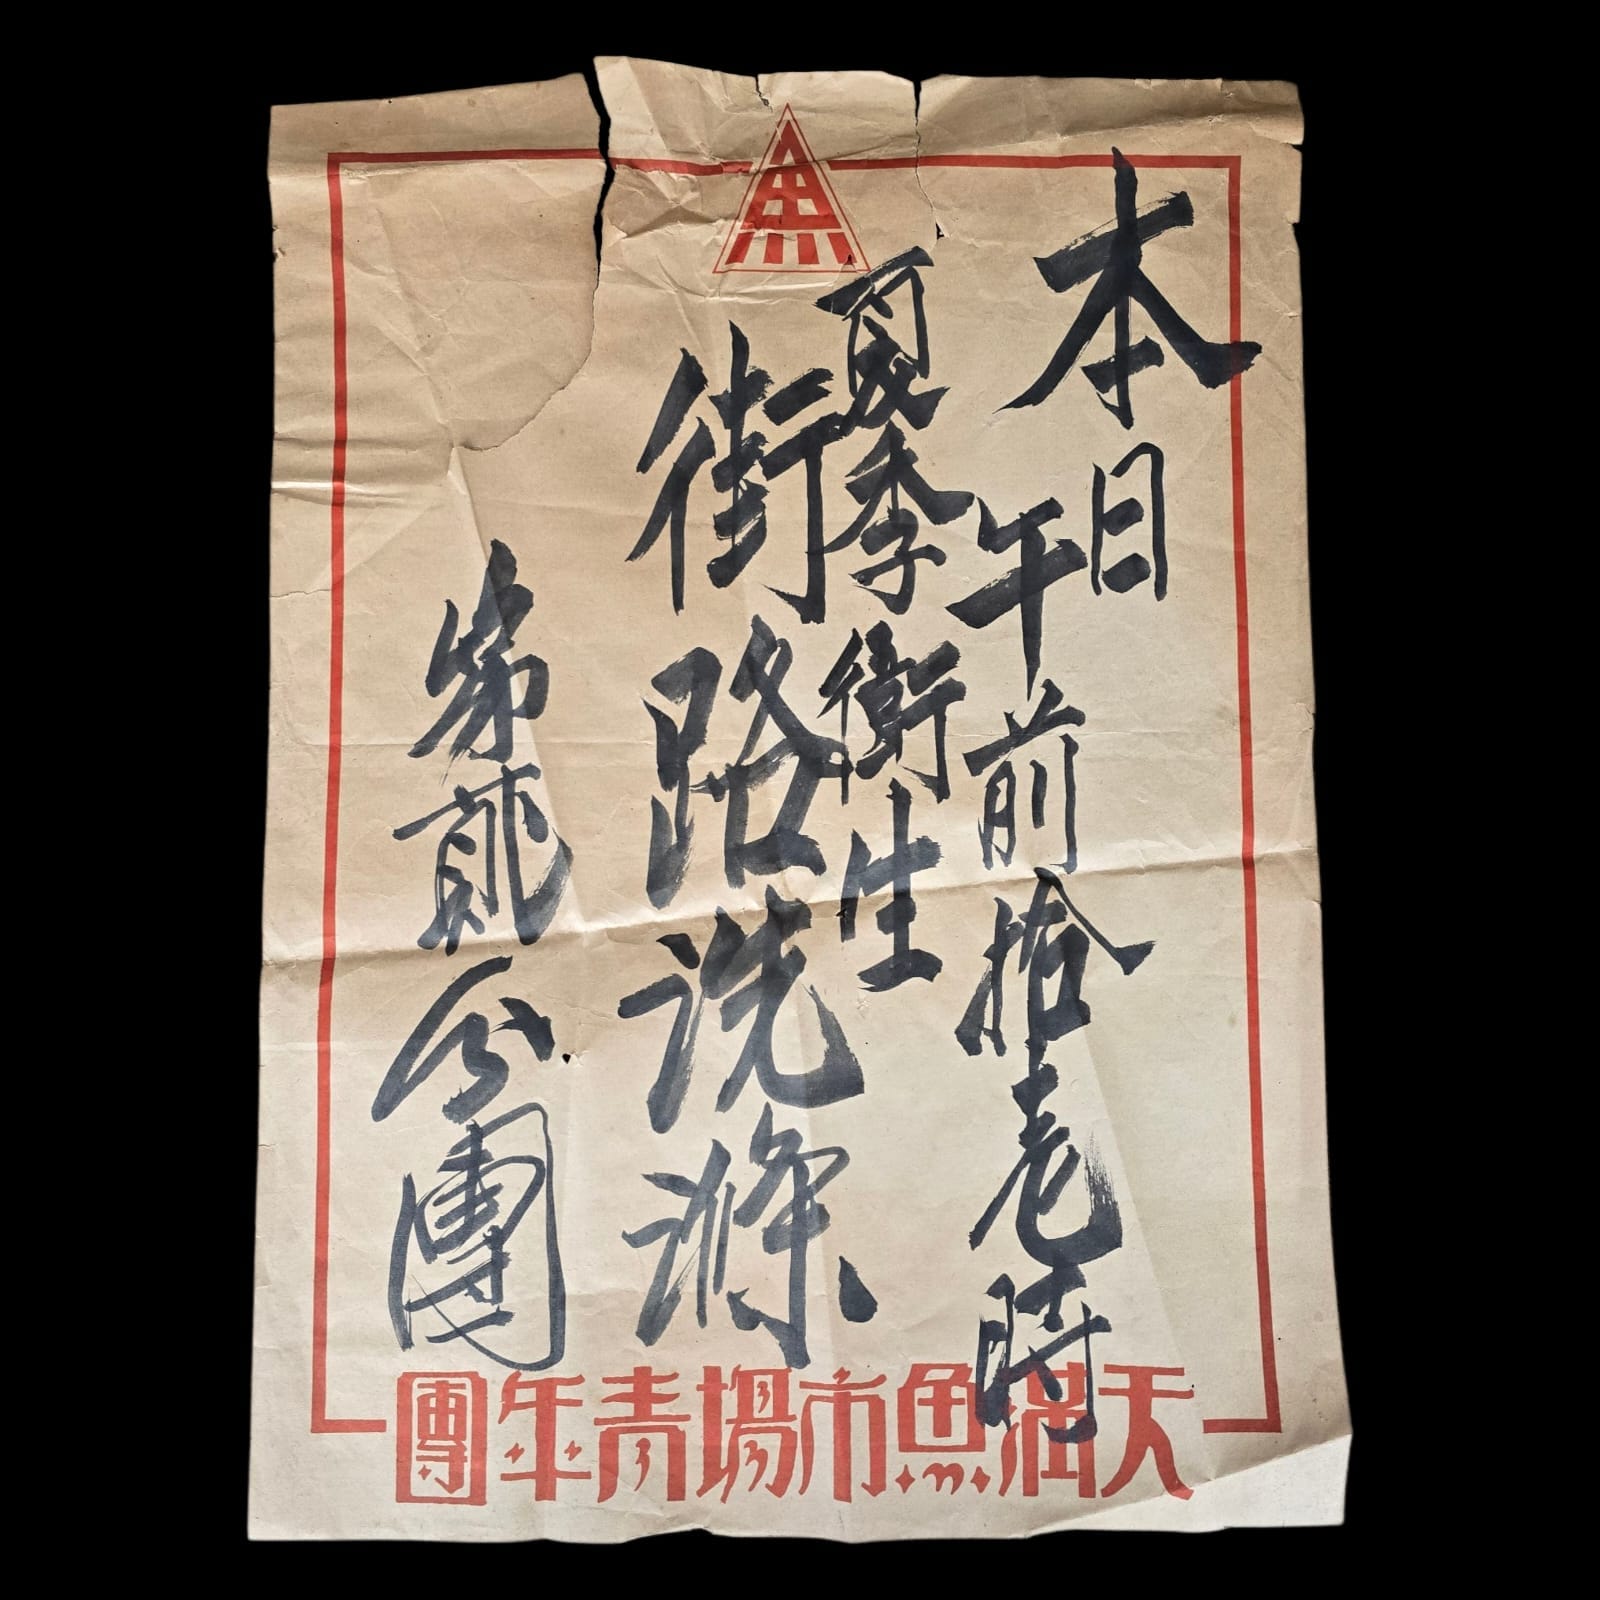 魚
本日
午前拾壱時
夏季衛生
街路洗滌
第貳分團
天満魚市場青年團